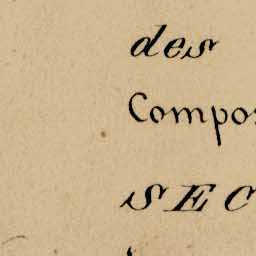 des
Compos
SEC